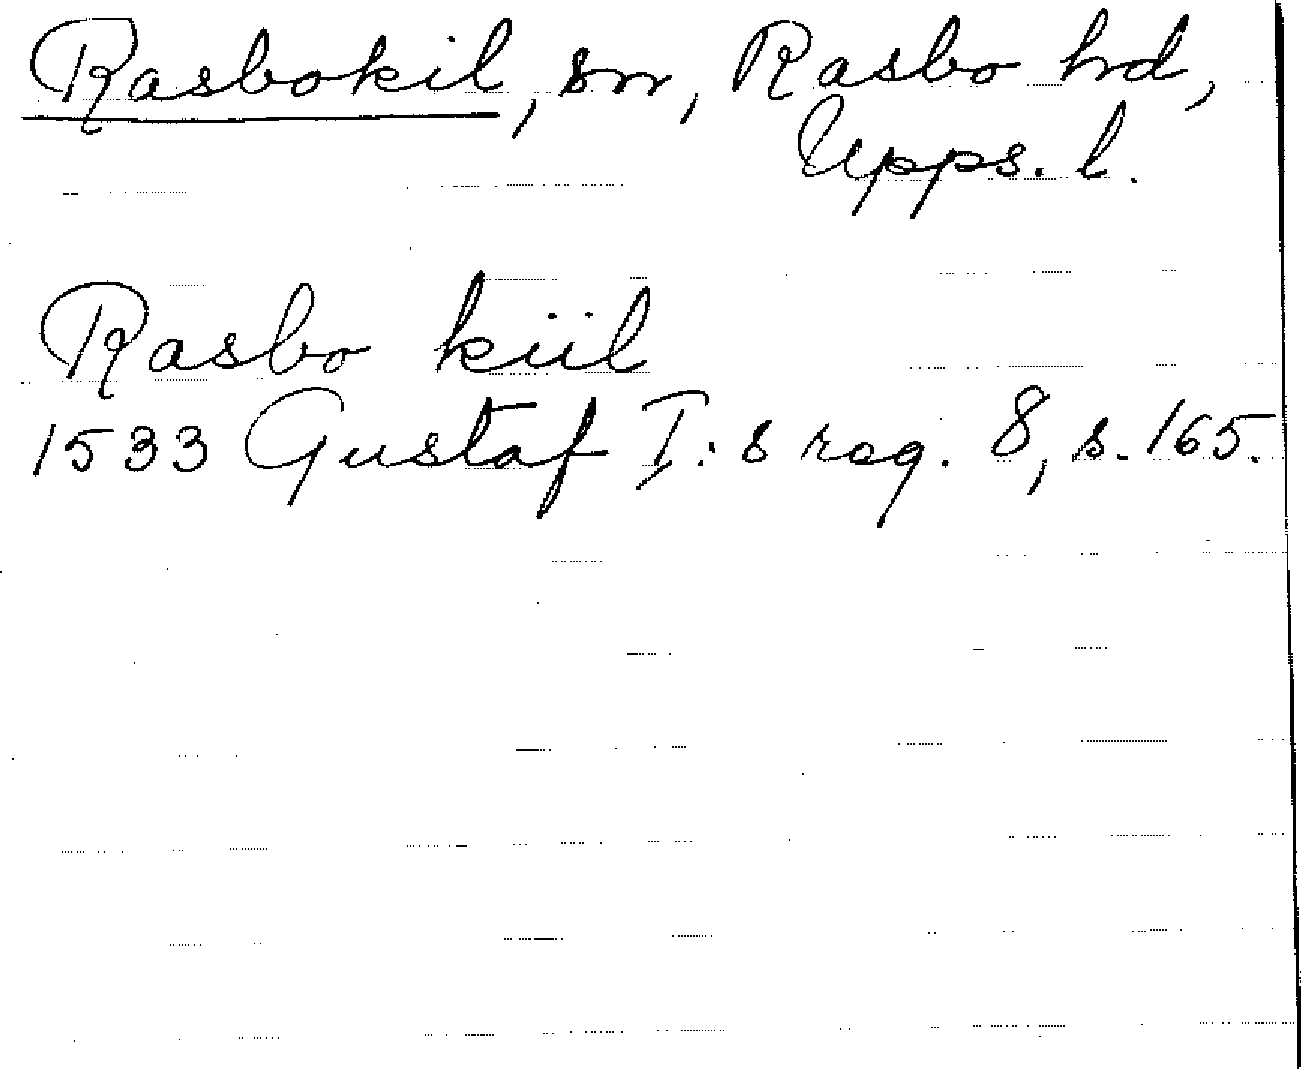 Rasbokil, sn, Rasbo hd,
Upps. l.
Rasbo kiil
1533 Gustaf I:s reg. 8, s. 165.